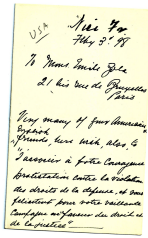 USA
Nice Fr
Feby 3d 98
To Mons Emile Zola
21 bis rue de Bruxelles
Paris
Very many of your American
English
friends, here wish, also, to
"s'associer à votre courageuse
protestation contre la violation
des droits de la defense, et vous
felicitent pour votre vaillante
campagne en faveur du droit et
de la justice"